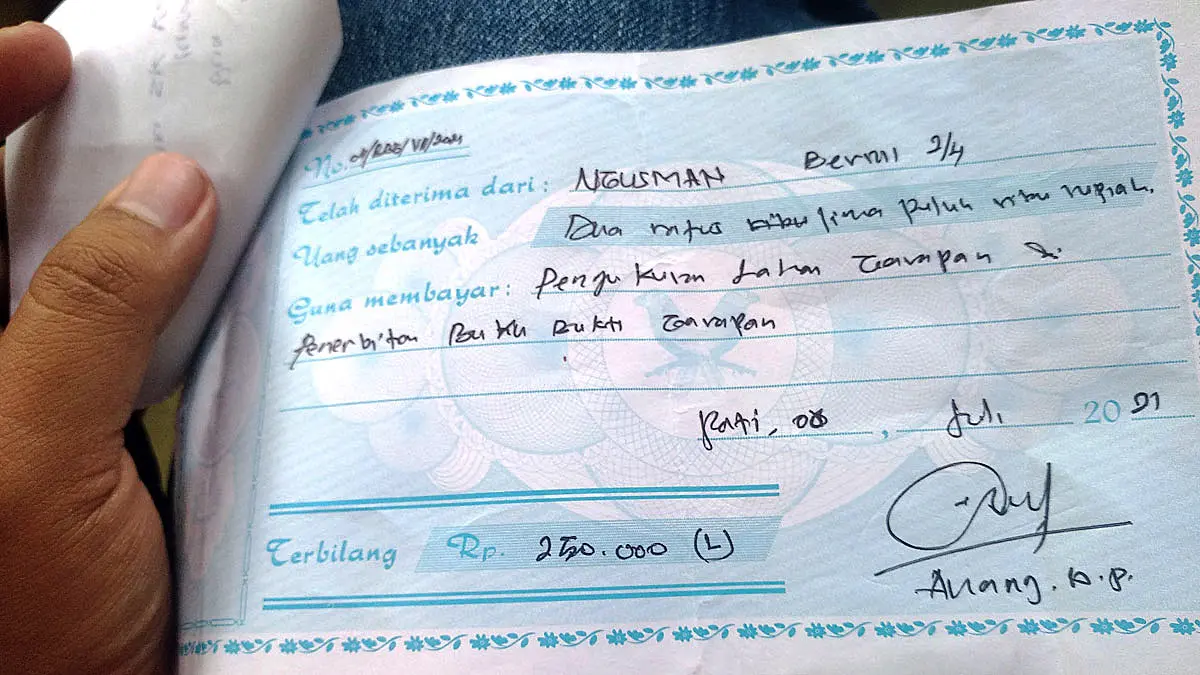 No. 01/BBG/VII/2021
Telah diterima dari : NGUSMAN Bermi 2/4
Uang sebanyak Dua ratus lima puluh ribu rupiah.
Guna membayar : Pengukuran Lahan Garapan &
Penerbitan Buku Bukti Garapan
Pati, 08, Juli 2021
Terbilang Rp. 250.000 (L)
Anang. A.P.